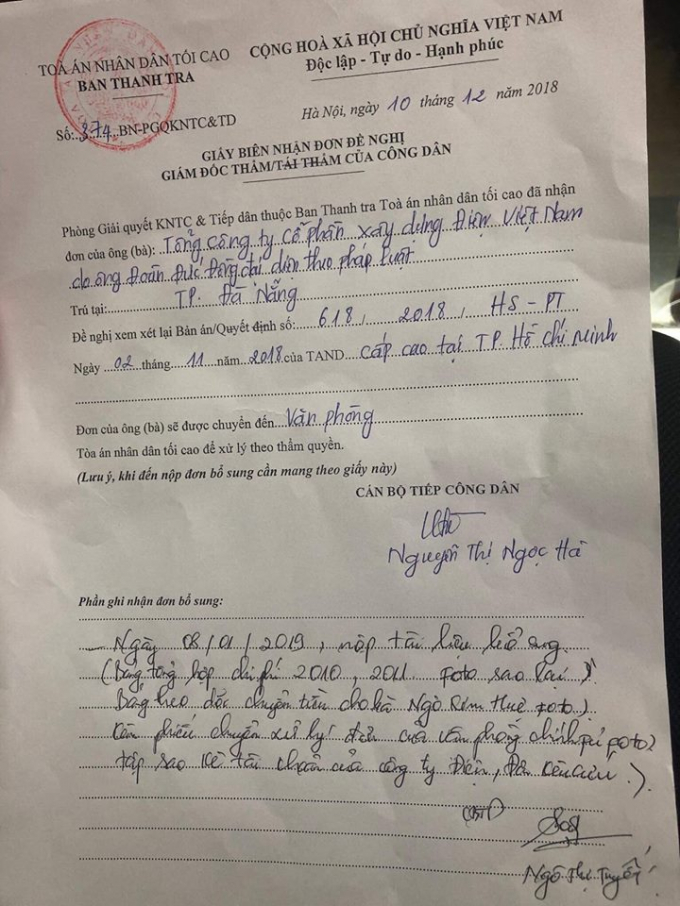 TOÀ ÁN NHÂN DÂN TỐI CAO
BAN THANH TRA
CỘNG HOÀ XÃ HỘI CHỦ NGHĨA VIỆT NAM
Độc lập - Tự do - Hạnh phúc
Số: 374 BN-PGQKNTC&TD
Hà Nội, ngày 10 tháng 12 năm 2018
GIẤY BIÊN NHẬN ĐƠN ĐỀ NGHỊ
GIÁM ĐỐC THẨM/TÁI THẨM CỦA CÔNG DÂN
Phòng Giải quyết KNTC & Tiếp dân thuộc Ban Thanh tra Toà án nhân dân tối cao đã nhận
đơn của ông (bà): Tổng công ty Cổ phần xây dựng Điện Việt Nam
do ông Đoàn Đức đại diện theo pháp luật
Trú tại: TP. Đà Nẵng
Đề nghị xem xét lại Bản án/Quyết định số: 618, 2018, HS-PT
Ngày 02 tháng 11 năm 2018 của TAND cấp cao tại TP Hồ Chí Minh
Đơn của ông (bà) sẽ được chuyển đến Văn phòng
Tòa án nhân dân tối cao để xử lý theo thẩm quyền.
(Lưu ý, khi đến nộp đơn bổ sung cần mang theo giấy này)
CÁN BỘ TIẾP CÔNG DÂN
Nguyễn Thị Ngọc Hà
Phần ghi nhận đơn bổ sung:
Ngày 08/01/2019, nộp tài liệu bổ sung
(Bảng tổng hợp chi phí 2010, 2011 Foto sao lại)
Bảng theo dõi chuyển tiền cho bà Ngô Kim Huệ foto)
phiếu chuyển xử lý đơn của văn phòng chính phủ foto)
tập sao kê tài khoản của công ty Điện, Đơn kêu cứu).
Ngô Thị Tuyết